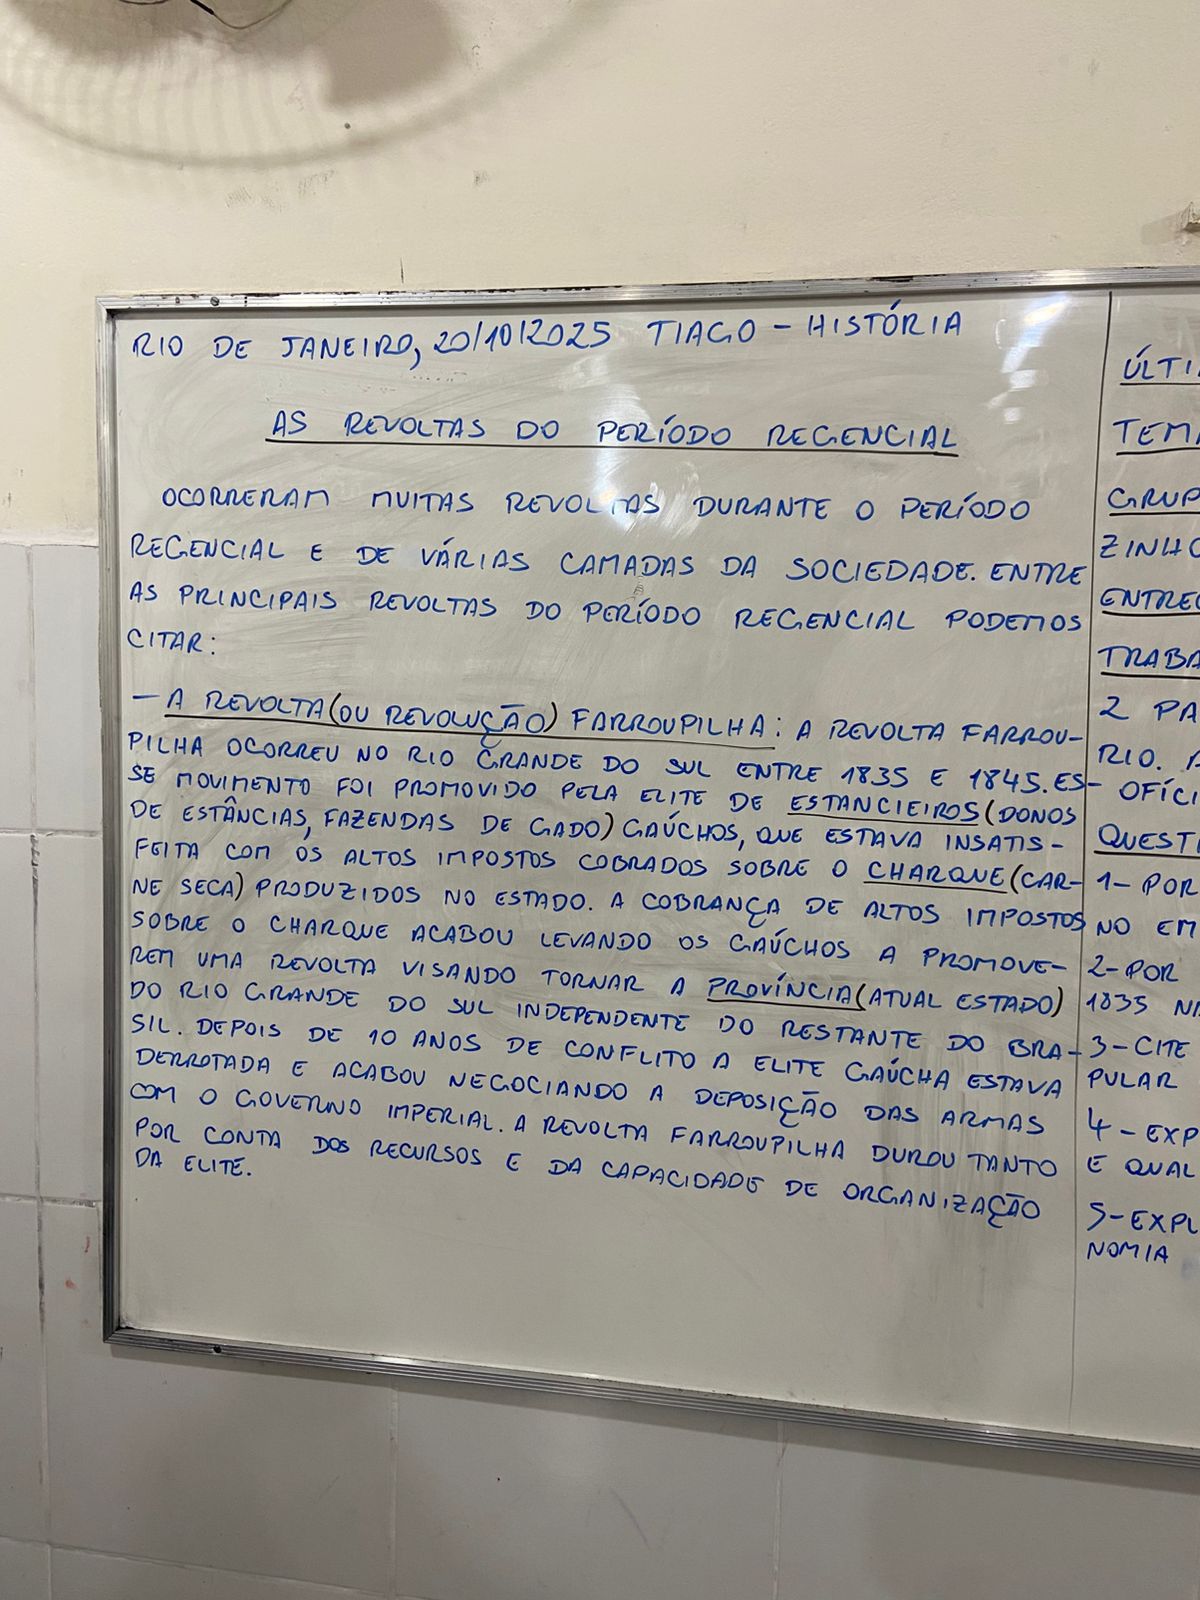 RIO DE JANEIRO, 20/10/2025 TIAGO - HISTÓRIA
AS REVOLTAS DO PERÍODO REGENCIAL
OCORRERAM MUITAS REVOLTAS DURANTE O PERÍODO
REGENCIAL E DE VÁRIAS CAMADAS DA SOCIEDADE. ENTRE
AS PRINCIPAIS REVOLTAS DO PERÍODO REGENCIAL PODEMOS
CITAR:
- A REVOLTA (OU REVOLUÇÃO) FARROUPILHA: A REVOLTA FARROU-
PILHA OCORREU NO RIO GRANDE DO SUL ENTRE 1835 E 1845. ES-
SE MOVIMENTO FOI PROMOVIDO PELA ELITE DE ESTANCIEIROS (DONOS
DE ESTÂNCIAS, FAZENDAS DE GADO) GAÚCHOS, QUE ESTAVA INSATIS-
FEITA COM OS ALTOS IMPOSTOS COBRADOS SOBRE O CHARQUE (CAR-
NE SECA) PRODUZIDOS NO ESTADO. A COBRANÇA DE ALTOS IMPOSTOS
SOBRE O CHARQUE ACABOU LEVANDO OS GAÚCHOS A PROMOVE-
REM UMA REVOLTA VISANDO TORNAR A PROVÍNCIA (ATUAL ESTADO)
DO RIO GRANDE DO SUL INDEPENDENTE DO RESTANTE DO BRA-
SIL. DEPOIS DE 10 ANOS DE CONFLITO A ELITE GAÚCHA ESTAVA
DERROTADA E ACABOU NEGOCIANDO A DEPOSIÇÃO DAS ARMAS
COM O GOVERNO IMPERIAL. A REVOLTA FARROUPILHA DUROU TANTO
POR CONTA DOS RECURSOS E DA CAPACIDADE DE ORGANIZAÇÃO
DA ELITE.
ÚLTI
TEMA
GRUP
ZINHO
ENTREG
TRABA
2 PA
RIO.
OFÍCI
QUESTI
1- POR
NO EM
2- POR
1835 NA
3- CITE
PULAR
4 - EXP
E QUAL
5- EXPL
NOMIA